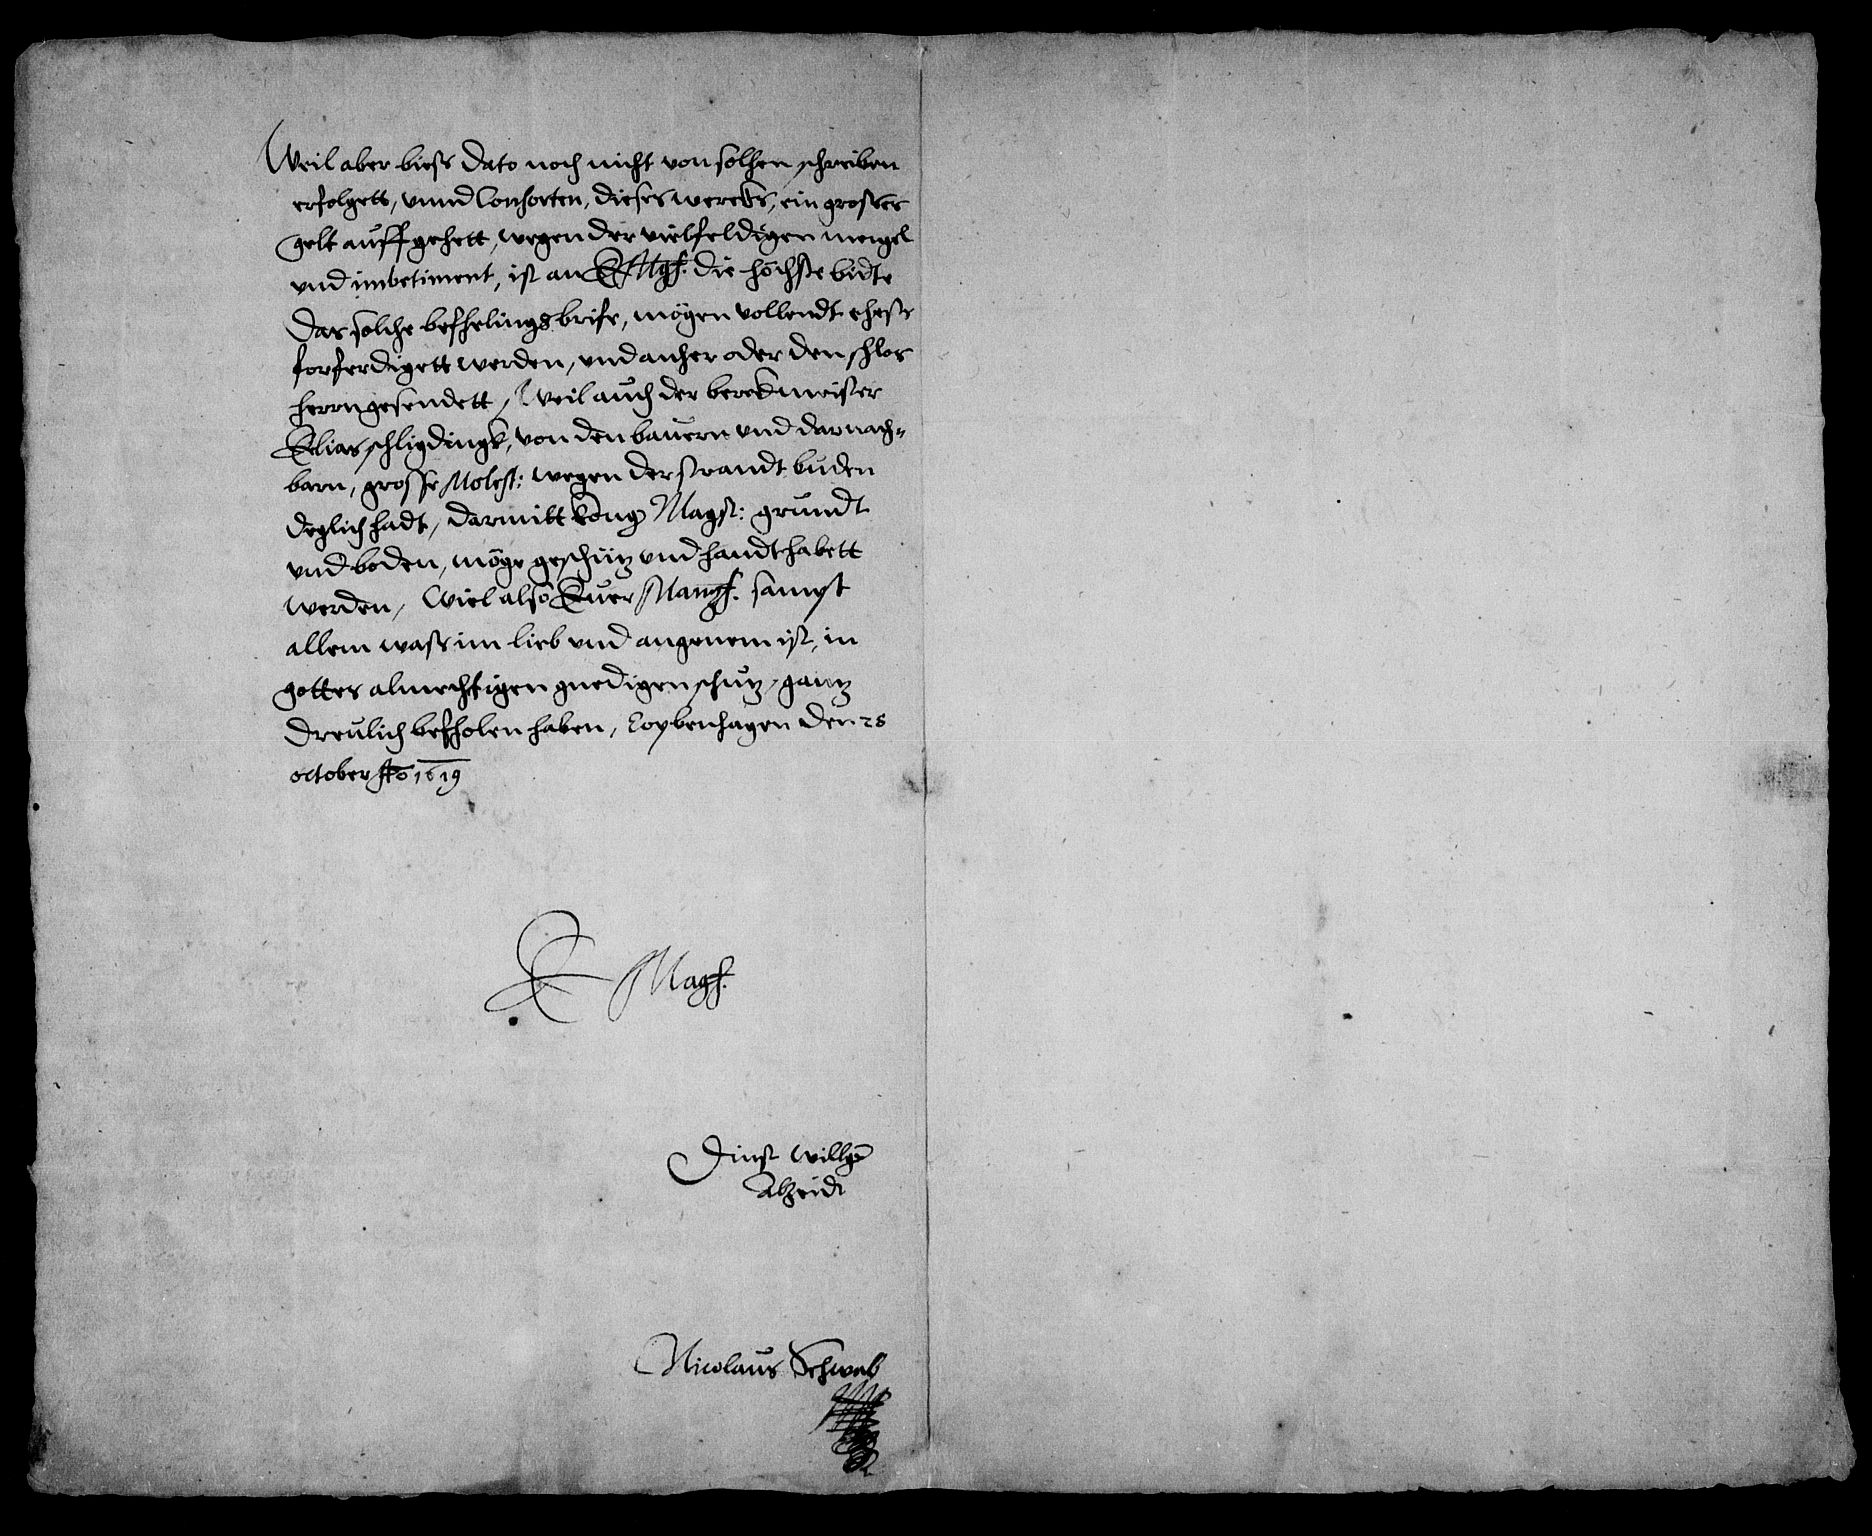 Weil aber biess dato noch nicht von solhen schreiben
erfolgett, vnnd Consorten, dieses wercks, ein grosses
gelt auff gehett, wegen der vielfeldigen mengel
vnd imbetiment, ist an E Mgf. die höchste bidte
das solche befhelings brife, mögen vollendt ehest
forferdigett werden, vnd anher oder den schlos
herrn gesendett, Weil auch der berckmeister
Elias schligdingk, von den bauern vnd darnach-
barn, grosse Molest: wegen der strandt buden
deglich hadt, darmitt köng Magst: grundt
vnd boden, möge geschütz vnd handthabett
werden, Wiel also Euer Mangf. sampt
allem wass im lieb vnd angenem ist, in
gottes almechtigen gnedigen schutz, gantz
dreulich befholen haben, Copbenhagen den 28
october Ao 1619
E Magf.
Dinst willg
Alzeidt
Nicolaus Schwab